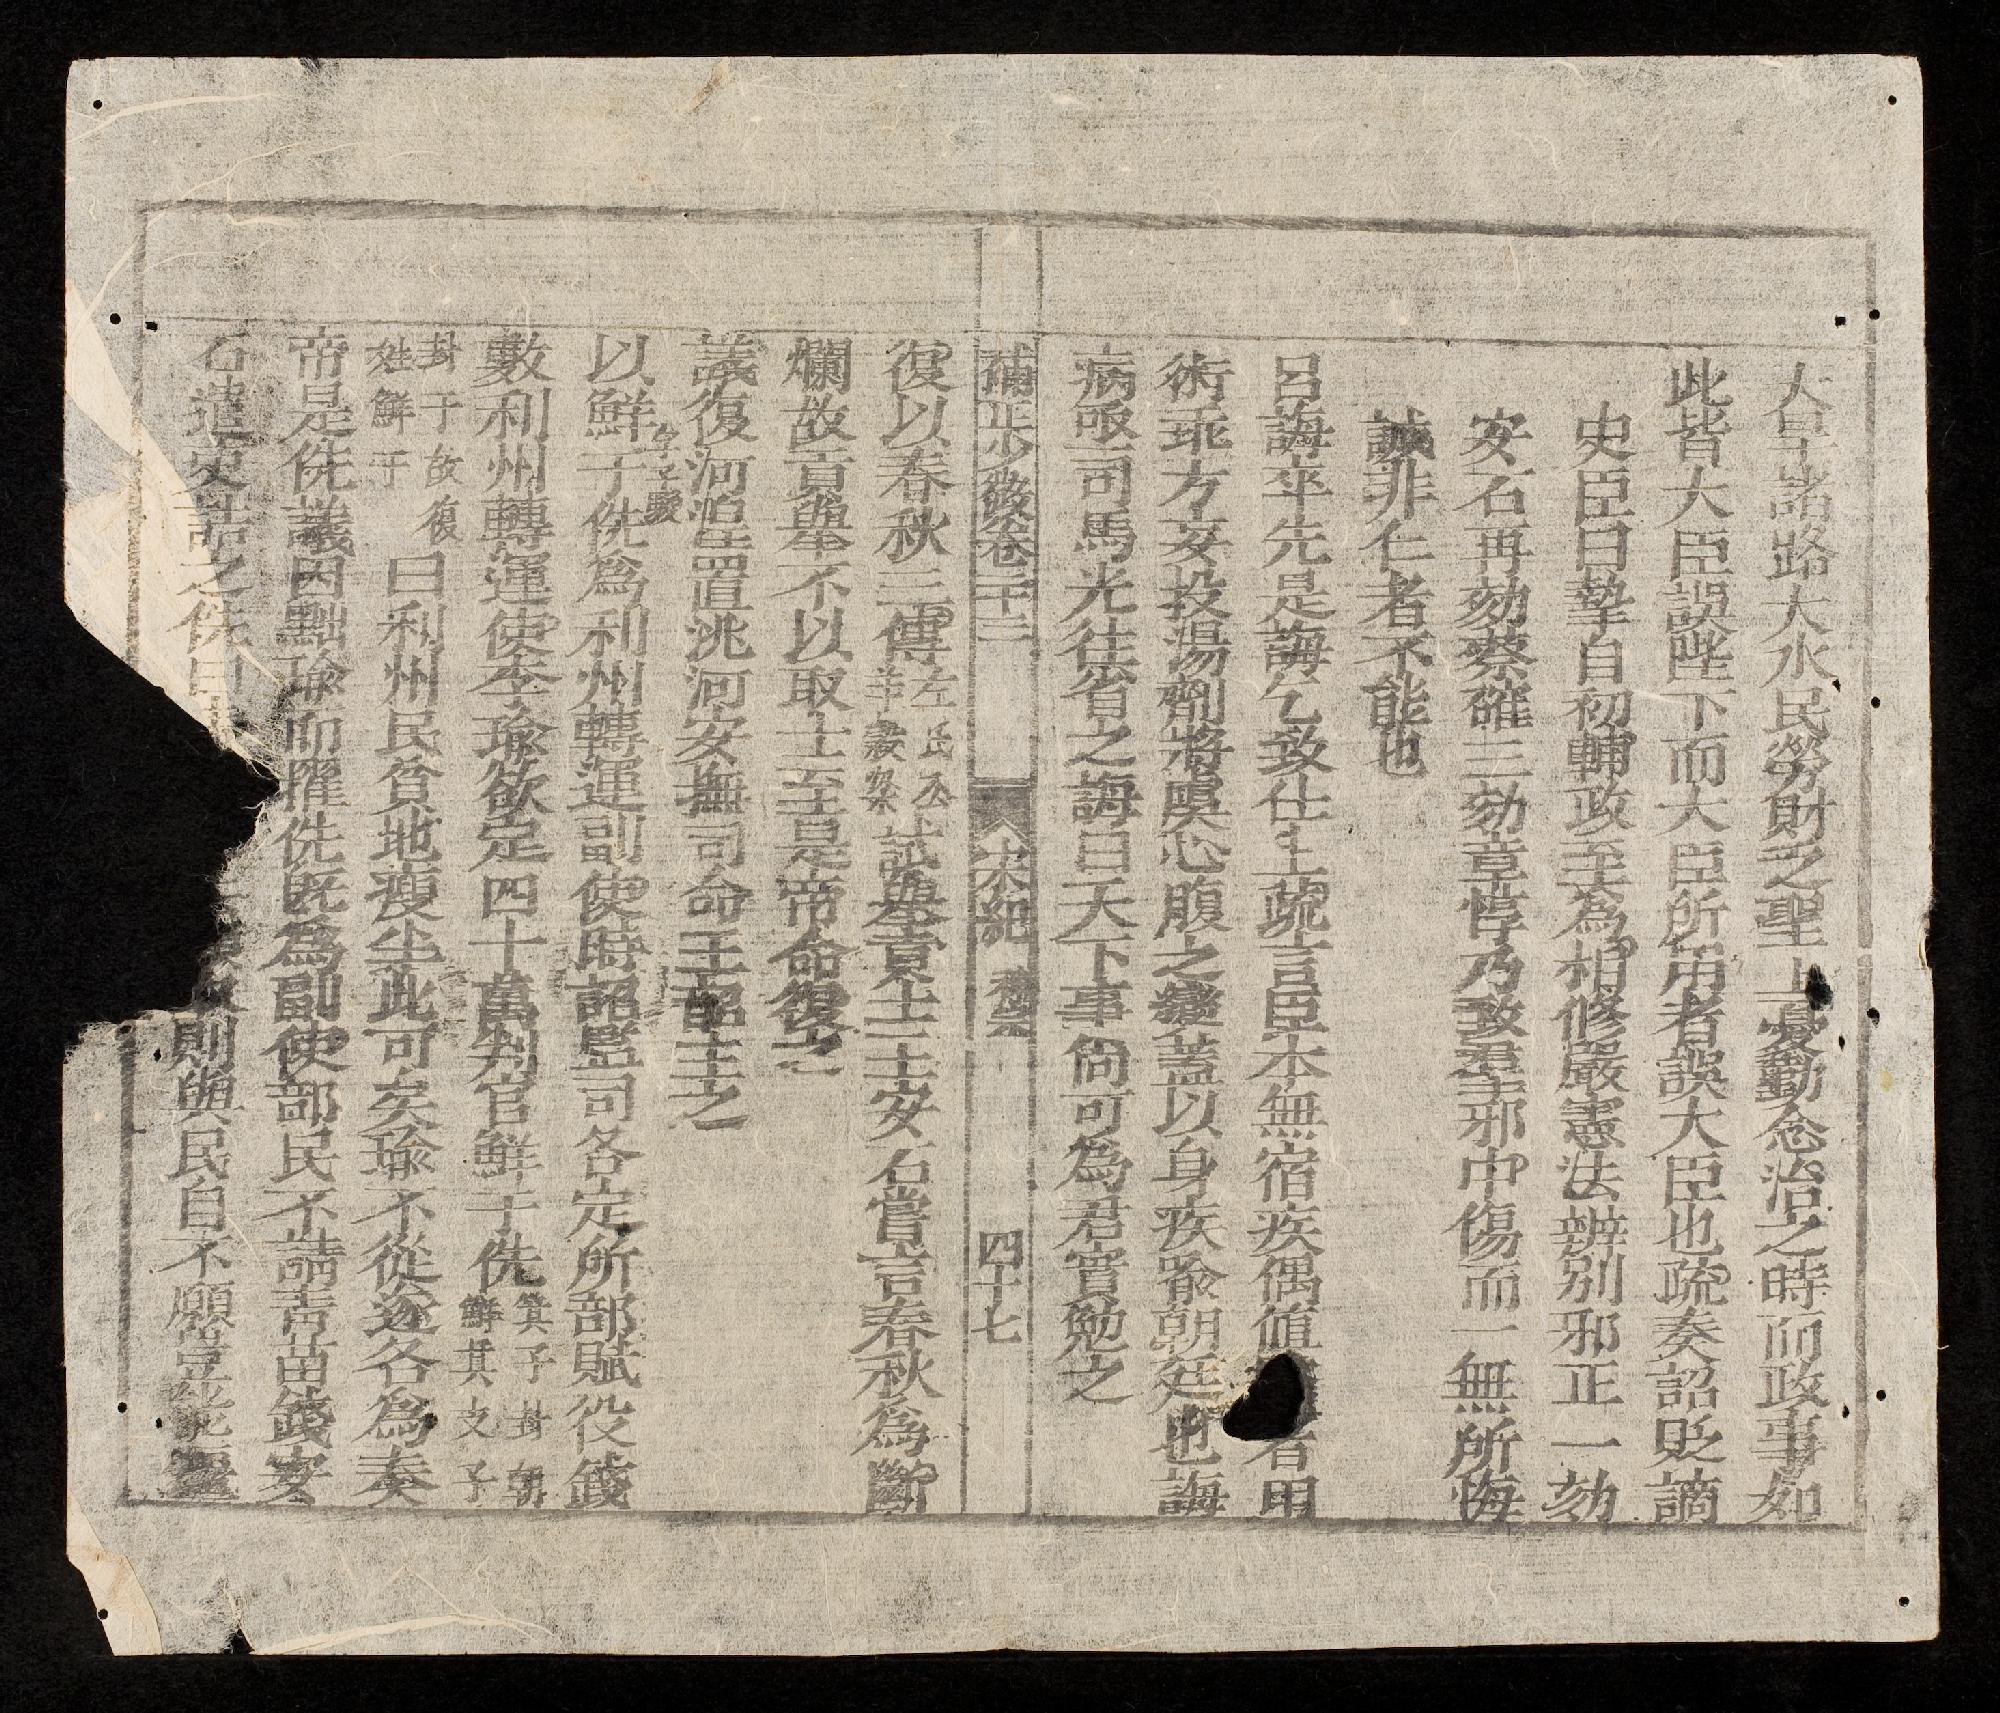 大旱諸路大水民勞財乏聖上憂勤念治之時而政事如
此皆大臣誤陛下而大臣所用者誤大臣也疏奏詔貶謫
史臣曰摯自初輔政至為相修嚴憲法辨别邪正一劾
安石再劾蔡確三劾章惇乃致羣邪中傷而一無所悔
誠非仁者不能也
呂誨卒先是誨乞致仕上疏言臣本無宿疾偶值者用
術乖方妄投湯劑將虞心腹之變蓋以身疾喻朝廷也誨
病亟司馬光往省之誨曰天下事尚可為君實勉之
補正少微卷二十三 宋紀 神宗 四十七
復以春秋三傳左氏公羊穀梁試舉貢士王安石嘗言春秋為斷
爛故貢舉不以取士至是帝命復之
議復河湟置洮河安撫司命王韶主之
以鮮于侁字子駿為利州轉運副使時詔監司各定所部賦役錢
數利州轉運使李瑜欲定四十萬判官鮮于侁箕子封朝鮮其支子
封于故復姓鮮于曰利州民貧地瘦如此可矣瑜不從遂各為奏
帝是侁議因黜瑜而擢侁既為副使部民不請青苗錢安
石遣吏詰之侁曰則與民自不願豈能彊